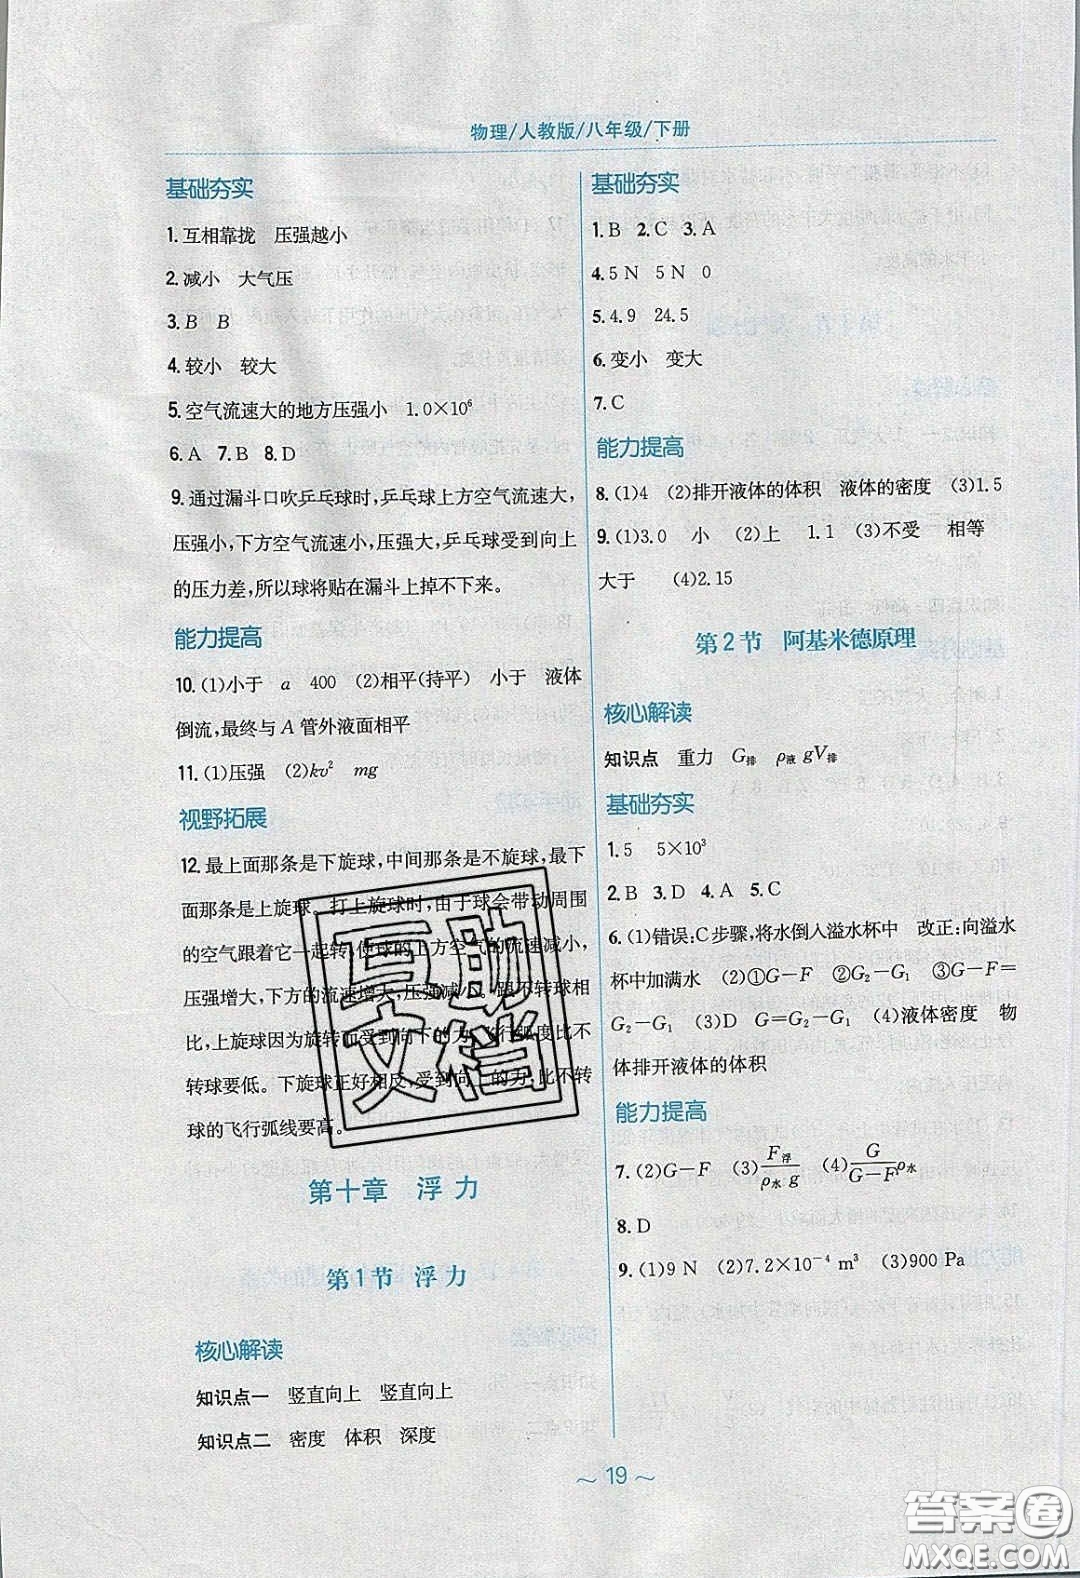 物理/人教版/八年级/下册
基础夯实
1.互相靠拢　压强越小
2.减小　大气压
3.B　B
4.较小　较大
5.空气流速大的地方压强小　1.0×10⁶
6.A　7.B　8.D
9.通过漏斗口吹乒乓球时,乒乓球上方空气流速大,
压强小,下方空气流速小,压强大,乒乓球受到向上
的压力差,所以球将贴在漏斗上掉不下来。
能力提高
10.(1)小于　a　400　(2)相平(持平)　小于　液体
倒流,最终与 A 管外液面相平
11.(1)压强　(2)kv²　mg
视野拓展
12.最上面那条是下旋球,中间那条是不旋球,最下
面那条是上旋球。打上旋球时,由于球会带动周围
的空气跟着它一起转,使球的上方空气的流速减小,
压强增大,下方的流速增大,压强减小。跟不转球相
比,上旋球因为旋转而受到向下的力,飞行弧度比不
转球要低。下旋球正好相反,受到向上的力,比不转
球的飞行弧线要高。
第十章　浮 力
第1节　浮 力
核心解读
知识点一　竖直向上　竖直向上
知识点二　密度　体积　深度
基础夯实
1.B　2.C　3.A
4.5 N　5 N　0
5.4.9　24.5
6.变小　变大
7.C
能力提高
8.(1)4　(2)排开液体的体积　液体的密度　(3)1.5
9.(1)3.0　小　(2)上　1.1　(3)不受　相等
大于　(4)2.15
第2节　阿基米德原理
核心解读
知识点　重力　G排　ρ液 gV排
基础夯实
1.5　5×10³
2.B　3.D　4.A　5.C
6.(1)错误:C步骤,将水倒入溢水杯中　改正:向溢水
杯中加满水　(2)①G－F　②G₂－G₁　③G－F＝
G₂－G₁　(3)D　G＝G₂－G₁　(4)液体密度　物
体排开液体的体积
能力提高
7.(2)G－F　(3)F浮/ρ水 g　(4)G/(G－F) ρ水
8.D
9.(1)9 N　(2)7.2×10⁻⁴ m³　(3)900 Pa
～ 19 ～
互助
文档
答案圈
MXQE.COM